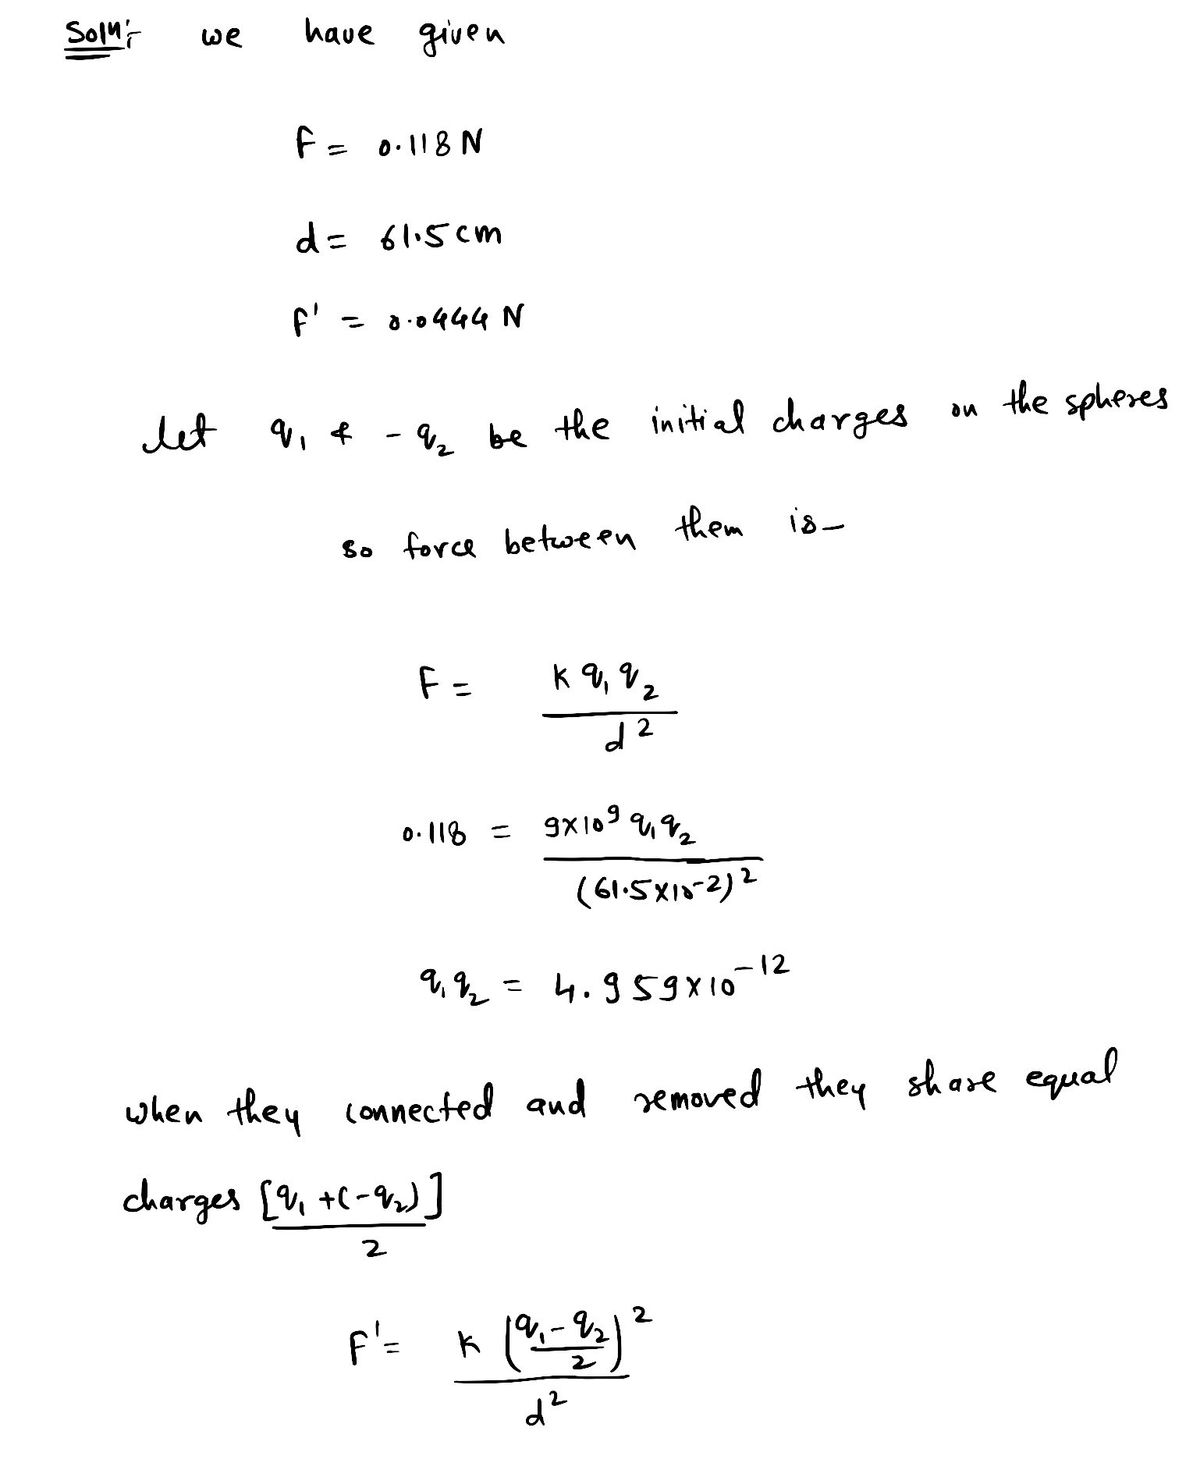 Soln:- we have given
F = 0.118 N
d = 61.5 cm
F' = 0.0444 N
let q₁ & - q₂ be the initial charges on the spheres
so force between them is -
F = K q₁ q₂ / d²
0.118 = 9×10⁹ q₁ q₂ / (61.5×10⁻²)²
q₁ q₂ = 4.959×10⁻¹²
when they connected and removed they share equal
charges [q₁ + (-q₂)] / 2
F' = K ((q₁ - q₂) / 2)² / d²